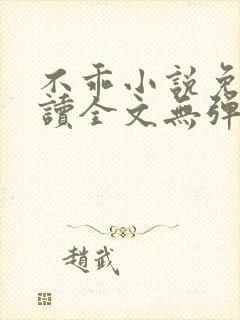 不乖小説免
讀全文無彈
趙武